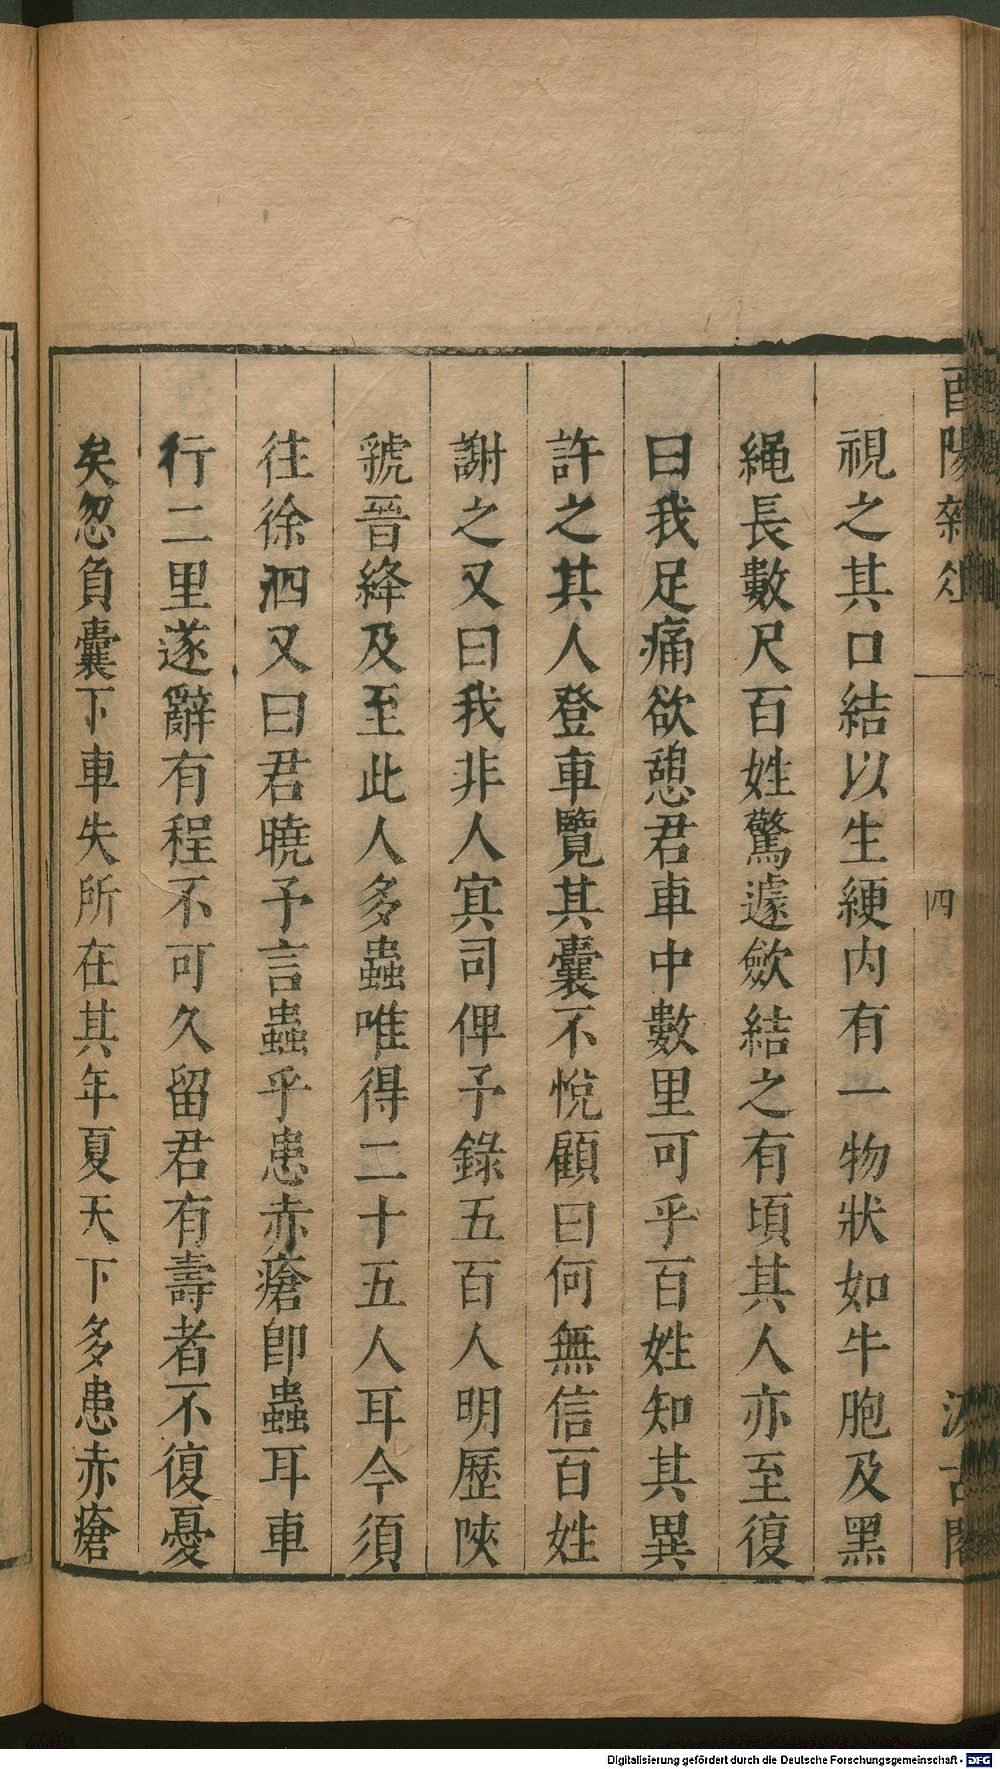 酉陽雜俎
四
汲古閣
視之其口結以生綆内有一物狀如牛胞及黑
繩長數尺百姓驚遽歛結之有頃其人亦至復
曰我足痛欲憩君車中數里可乎百姓知其異
許之其人登車覽其囊不悅顧曰何無信百姓
謝之又曰我非人㝠司俾予錄五百人明歷陜
虢晉絳及至此人多蟲唯得二十五人耳今須
往徐泗又曰君曉予言蟲乎患赤瘡即蟲耳車
行二里遂辭有程不可久留君有壽者不復憂
矣忽負囊下車失所在其年夏天下多患赤瘡
Digitalisierung gefördert durch die Deutsche Forschungsgemeinschaft - DFG